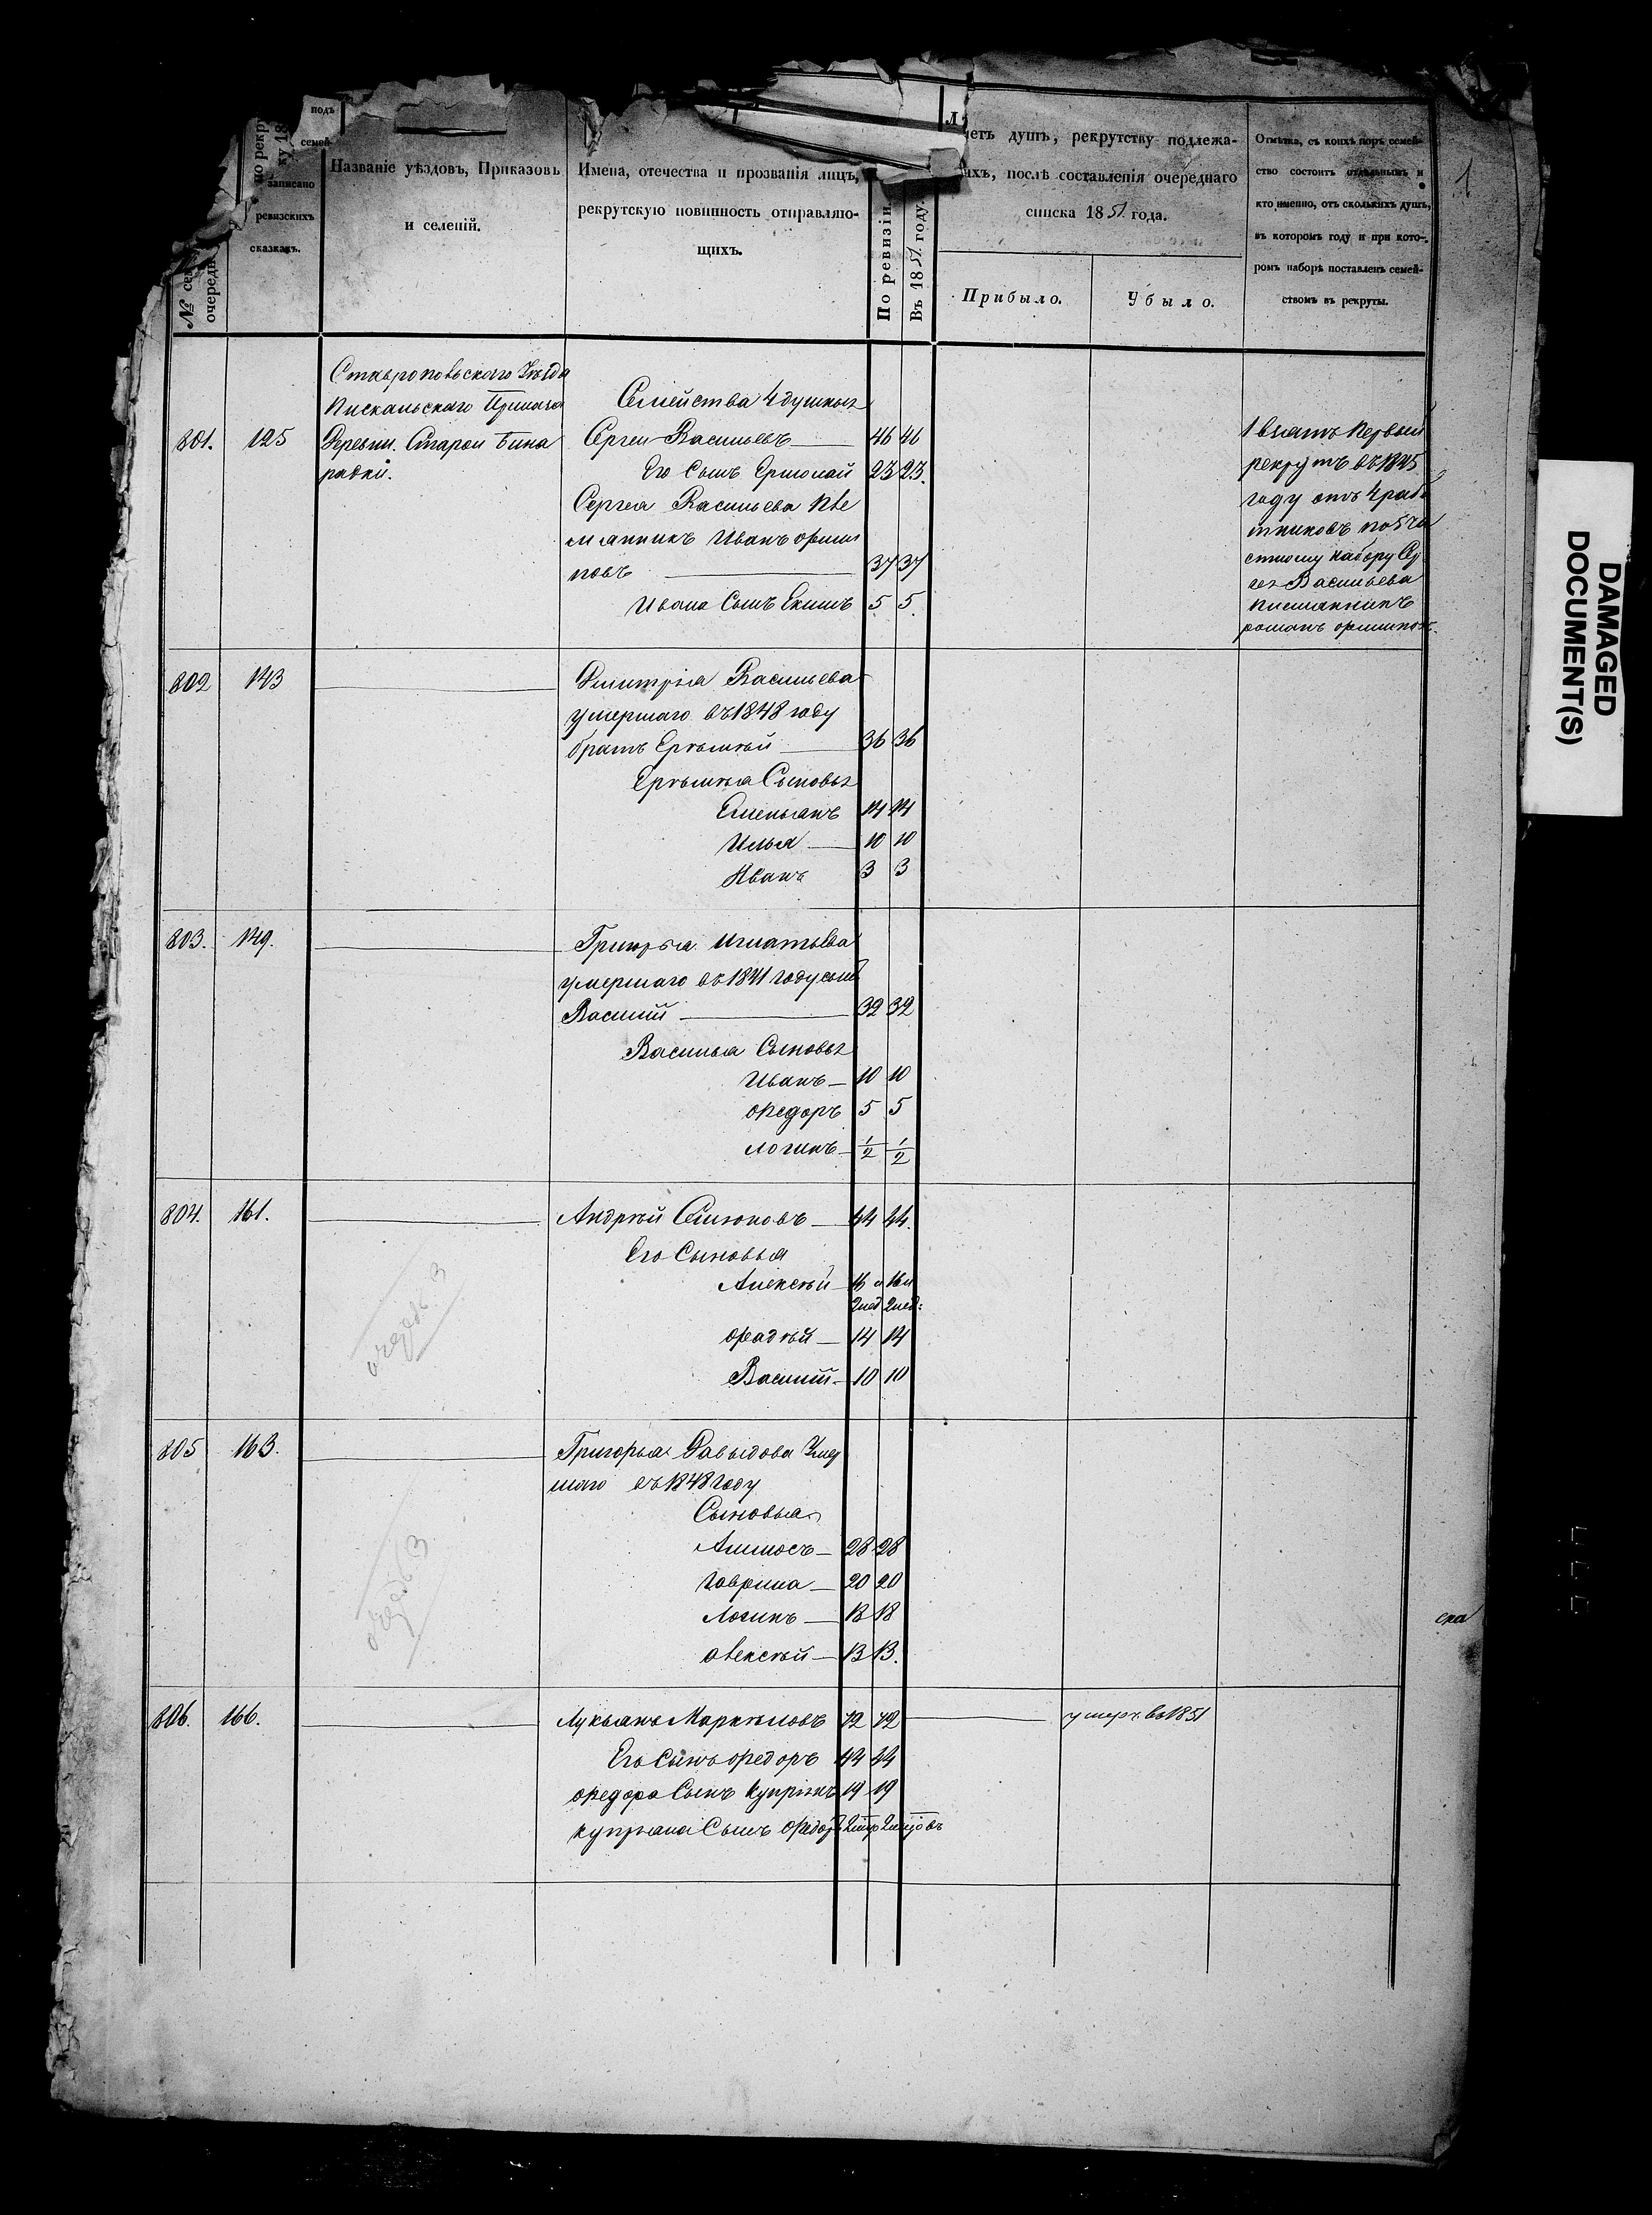 по рекру
ку 18
подъ
семей
записано
ревизскихъ
сказкахъ.
№ сем
очередн
Названіе уѣздовъ, Приказовъ
и селеній.
Имена, отечества и прозванія лицъ,
рекрутскую повинность отправляю-
щихъ.
По ревизіи.
Въ 1851 году.
четъ душъ, рекрутству подлежа-
ихъ, послѣ составленія очереднаго
списка 1851 года.
Прибыло.
Убыло.
Отмѣтка, съ коихъ поръ семей-
ство состоитъ отдѣльнымъ и
кто именно, отъ сколькихъ душъ,
въ которомъ году и при кото-
ромъ наборѣ поставленъ семей-
ствомъ въ рекруты.
1
Ставропольскаго Уѣзда
Пискальскаго Приказа
801. 125 Деревни Старой Бина
радки.
Семейства 4 душныя
Сергей Васильевъ 46 46
Его Сынъ Ермолай 23 23.
Сергея Васильева пле
мянникъ Иванъ Филип
повъ 37 37
Ивана Сынъ Екимъ 5 5
1 взятъ первый
рекрутъ въ 1845
году отъ 4 рабо
тниковъ по 5 ча
стному набору Сер
гея Васильева
племянникъ
романъ филипов.
802 143 Дмитрія Васильева
умершаго въ 1848 году
братъ Ерѣмѣй 36 36
Ерѣмѣя Сыновья
Емельянъ 14 14
Илья 10 10
Иванъ 3 3
803. 149. Григорья Игнатьева
умершаго въ 1841 году сынъ
Василій 32 32
Василья Сыновья
Иванъ 10 10
Федоръ 5 5
логинъ 1/2 1/2
804. 161. Андрѣй Семіоновъ 44 44.
Его Сыновья
Алексѣй 16 и 16 и
2 нед 2 нед:
Фадѣй 14 14
Василій 10 10
очередь 3
805 163. Григорья Давыдова Умер
шаго въ 1848 году
Сыновья
Амносъ 28 28
Гаврила 20 20
Логинъ 18 18
Алексѣй 13 13.
очередь 3
806. 166. Лукьянъ Маркѣловъ 72 72 умеръ въ 1851
Его Сынъ Федоръ 44 44
Федора Сынъ Купріянъ 19 19
Купріяна Сынъ Федоръ
сра
DAMAGED
DOCUMENT(S)